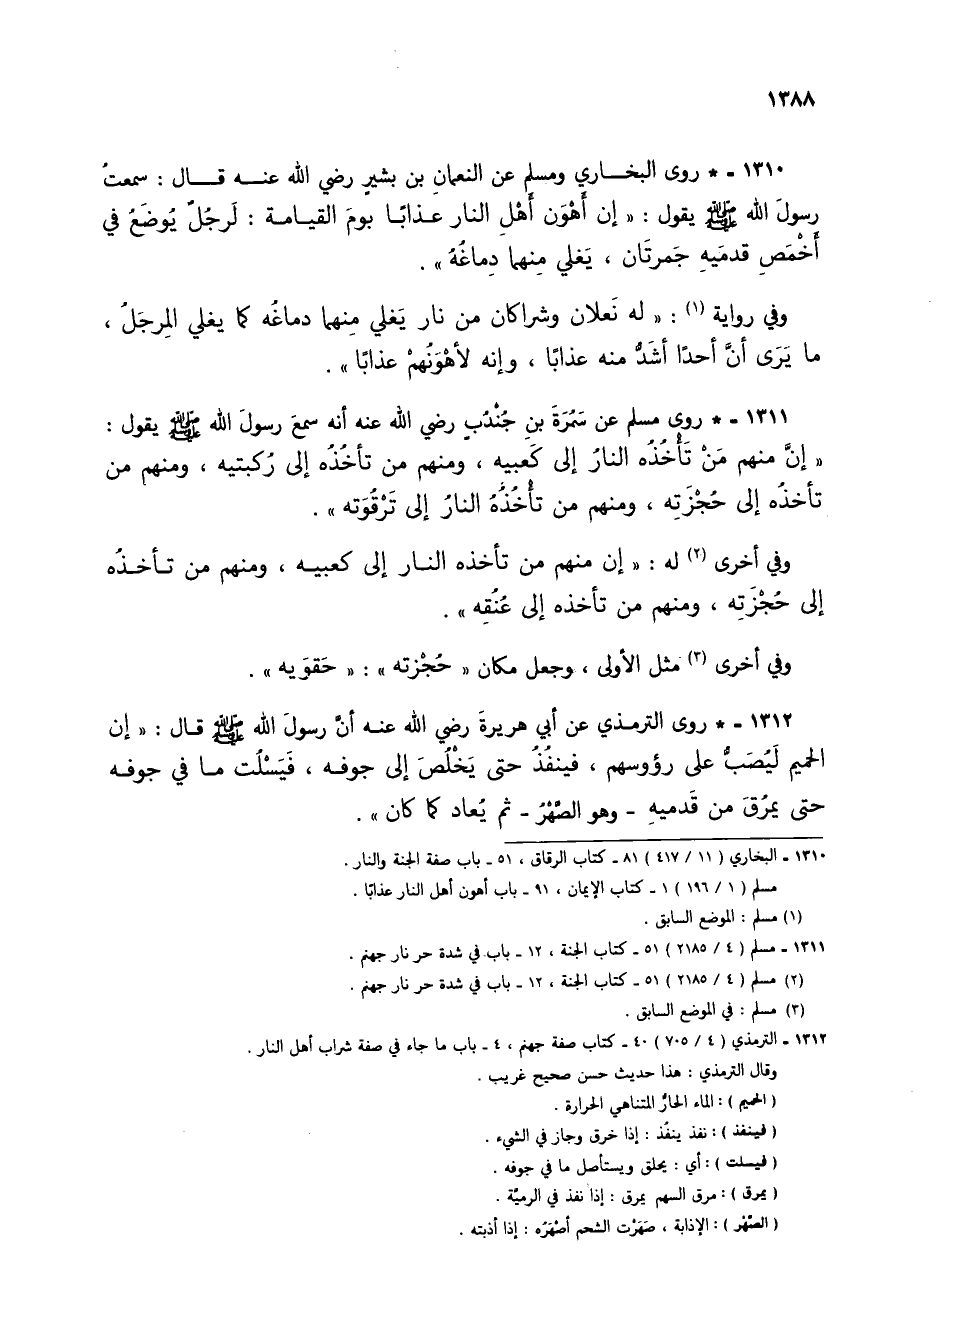 ١٣٨٨
١٣١٠ - * روى البخـــاري ومسلم عن النعمانِ بن بشيرٍ رضي الله عنـــه قـــال : سمعتُ
رسولَ الله ﷺ يقول : « إن أَهْوَن أَهْلِ النار عـذابًـا يومَ القيـامـة : لَرجُلٌ يُوضَعُ في
أَخْمَصِ قدمَيهِ جَمرتَان ، يَغلي مِنهما دِماغُهُ » .
وفي رواية (١) : « له نَعلان وشراكان من نار يَغلي مِنهما دماغُه كما يغلي المِرجَلُ ،
ما يَرَى أنَّ أحدًا أشَدُّ منه عذابًا ، وإنه لأهْوَنُهمْ عذابًا » .
١٣١١ - * روى مسلم عن سَمُرَةَ بنِ جُنْدُبٍ رضي الله عنه أنه سمعَ رسولَ الله ﷺ يقول :
« إنَّ منهم مَنْ تَأْخُذُه النارُ إلى كَعبيه ، ومنهم من تأخُذُه إلى رُكبتيه ، ومنهم من
تأخذُه إلى حُجْزَتِه ، ومنهم من تأْخُذُهُ النارُ إلى تَرْقُوَته » .
وفي أخرى (٢) له : « إن منهم من تأخذه النـار إلى كعبيـه ، ومنهم من تـأخـذُه
إلى حُجْزَتِه ، ومنهم من تأخذه إلى عُنُقِه » .
وفي أخرى (٣) مثل الأولى ، وجعل مكان « حُجْزته » : « حَقوَيه » .
١٣١٢ - * روى الترمذي عن أبي هريرةَ رضي الله عنـه أنَّ رسولَ الله ﷺ قال : « إن
الحميم لَيُصَبُّ على رؤوسهم ، فينفُذُ حتى يَخْلُصَ إلى جوفـه ، فَيَسْلُت مـا في جوفـه
حتى يمرُقَ من قَدميهِ - وهو الصَّهْرُ - ثم يُعاد كما كان » .
١٣١٠ - البخاري ( ١١ / ٤١٧ ) ٨١ - كتاب الرقاق ، ٥١ - باب صفة الجنة والنار .
مسلم ( ١ / ١٩٦ ) ١ - كتاب الإيمان ، ٩١ - باب أهون أهل النار عذابًا .
(١) مسلم : الموضع السابق .
١٣١١ - مسلم ( ٤ / ٢١٨٥ ) ٥١ - كتاب الجنة ، ١٢ - باب في شدة حر نار جهنم .
(٢) مسلم ( ٤ / ٢١٨٥ ) ٥١ - كتاب الجنة ، ١٢ - باب في شدة حر نار جهنم .
(٣) مسلم : في الموضع السابق .
١٣١٢ - الترمذي ( ٤ / ٧٠٥ ) ٤٠ - كتاب صفة جهنم ، ٤ - باب ما جاء في صفة شراب أهل النار .
وقال الترمذي : هذا حديث حسن صحيح غريب .
( الحميم ) : الماء الحارُّ المتناهي الحرارة .
( فينفذ ) : نفذ ينفُذ : إذا خرق وجاز في الشيء .
( فيسلت ) : أي : يحلق ويستأصل ما في جوفه .
( يمرق ) : مرق السهم يمرق : إذا نفذ في الرميَّة .
( الصَّهْر ) : الإذابة ، صَهَرْت الشحم أصْهَرُه : إذا أذبته .